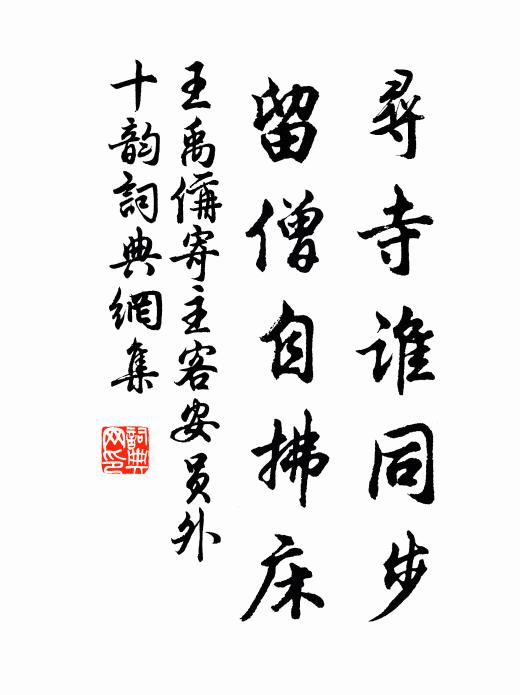 尋寺谁同步
留僧自拂床
王禹偁寄主客安员外
十韵詞典網集
詞典網印